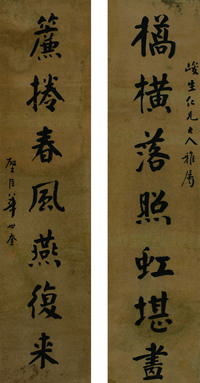 峻生仁兄大人雅属
橋橫落照虹堪畫
簾捲春風燕復来
璧臣華世奎